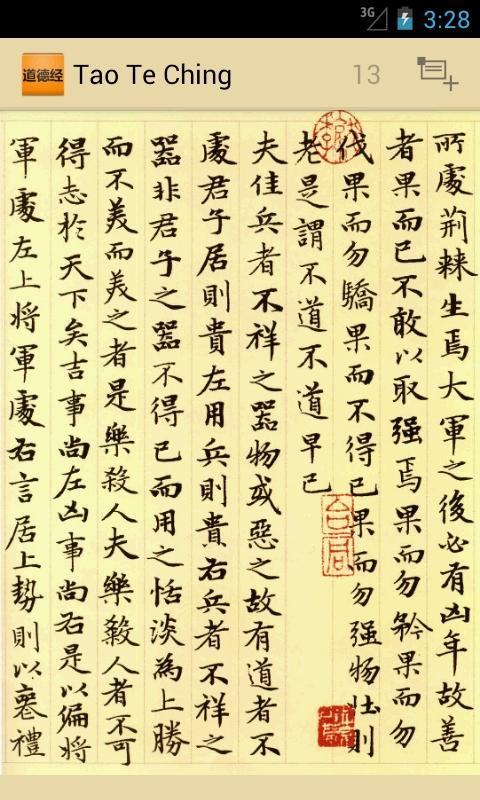 3G
3:28
道德经
Tao Te Ching
13
所處荊棘生焉大軍之後必有凶年故善
者果而已不敢以取强焉果而勿矜果而勿
伐果而勿驕果而不得已果而勿强物壯則
老是謂不道不道早已
夫佳兵者不祥之器物或惡之故有道者不
處君子居則貴左用兵則貴右兵者不祥之
器非君子之器不得已而用之恬淡為上勝
而不美而美之者是樂殺人夫樂殺人者不可
得志於天下矣吉事尚左凶事尚右是以偏將
軍處左上將軍處右言居上勢則以喪禮